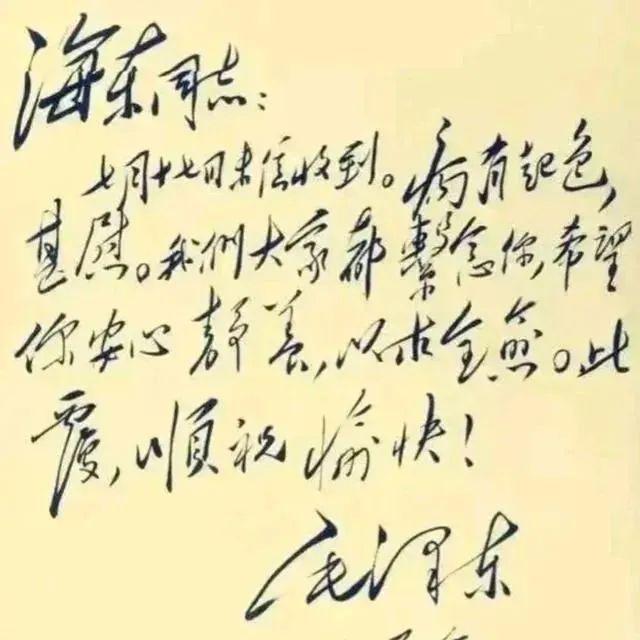 海东同志：
七月十七日来信收到。病有起色，
甚慰。我们大家都繫念你，希望
你安心静养，以求全愈。此
覆，顺祝愉快！
毛泽东